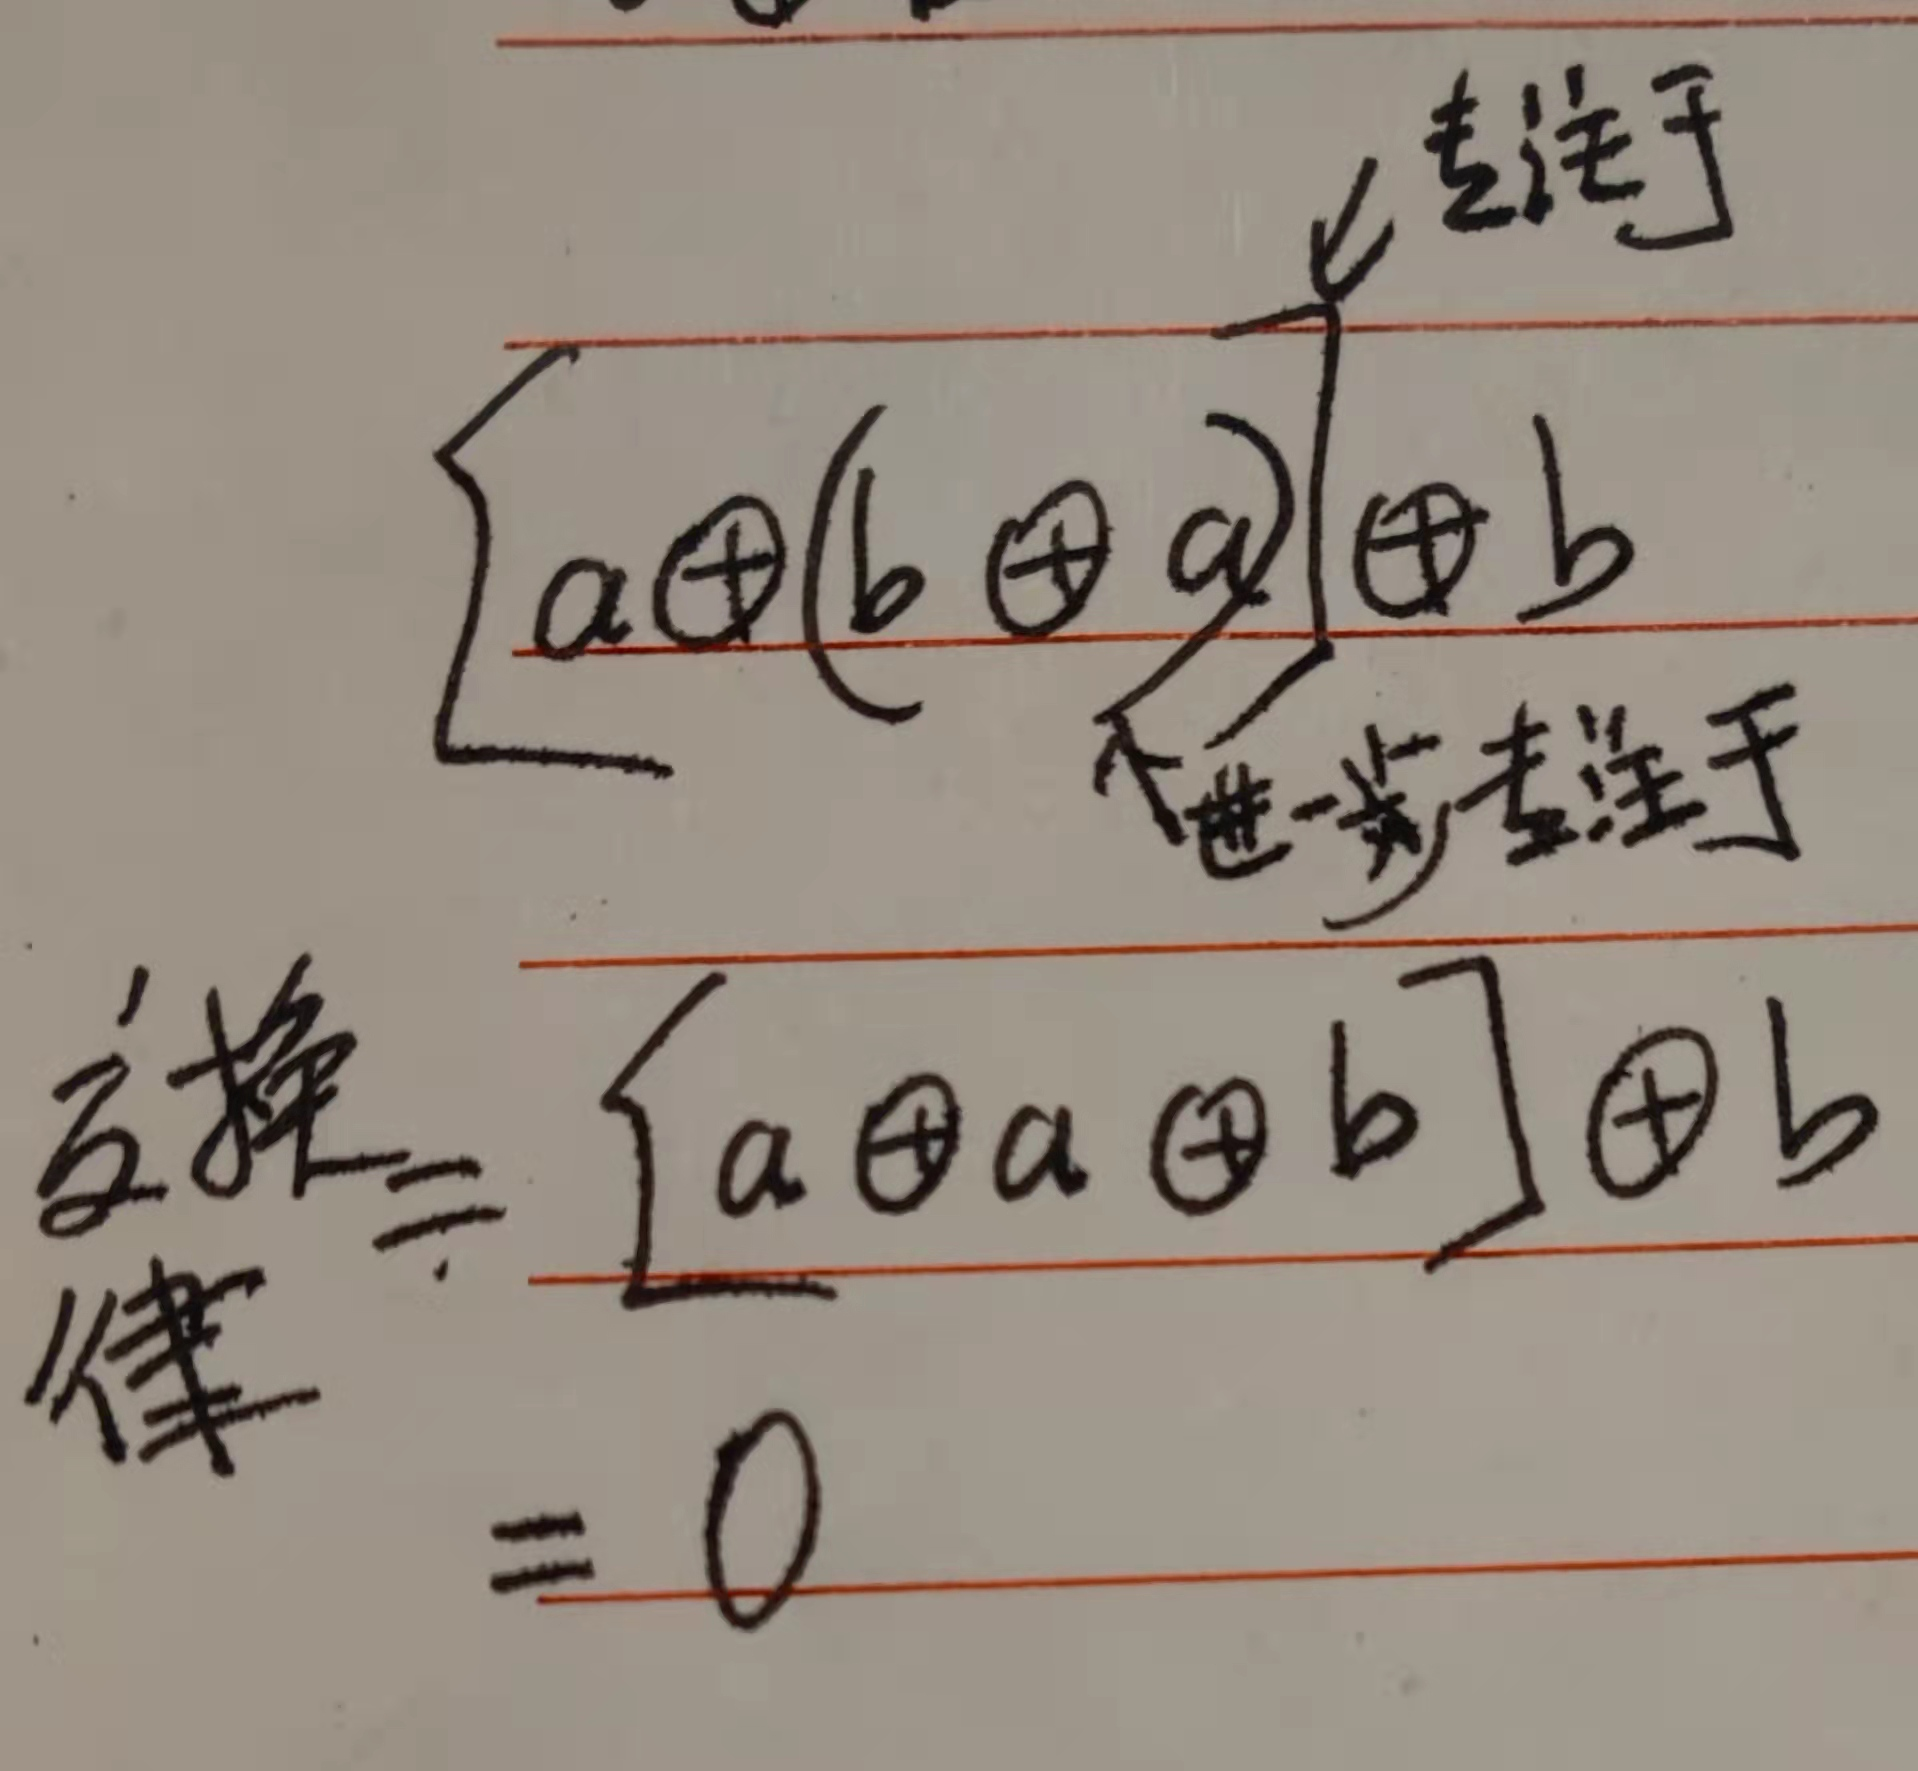 专注于
[a⊕(b⊕a)]⊕b
进一步专注于
交换律 = [a⊕a⊕b]⊕b
= 0